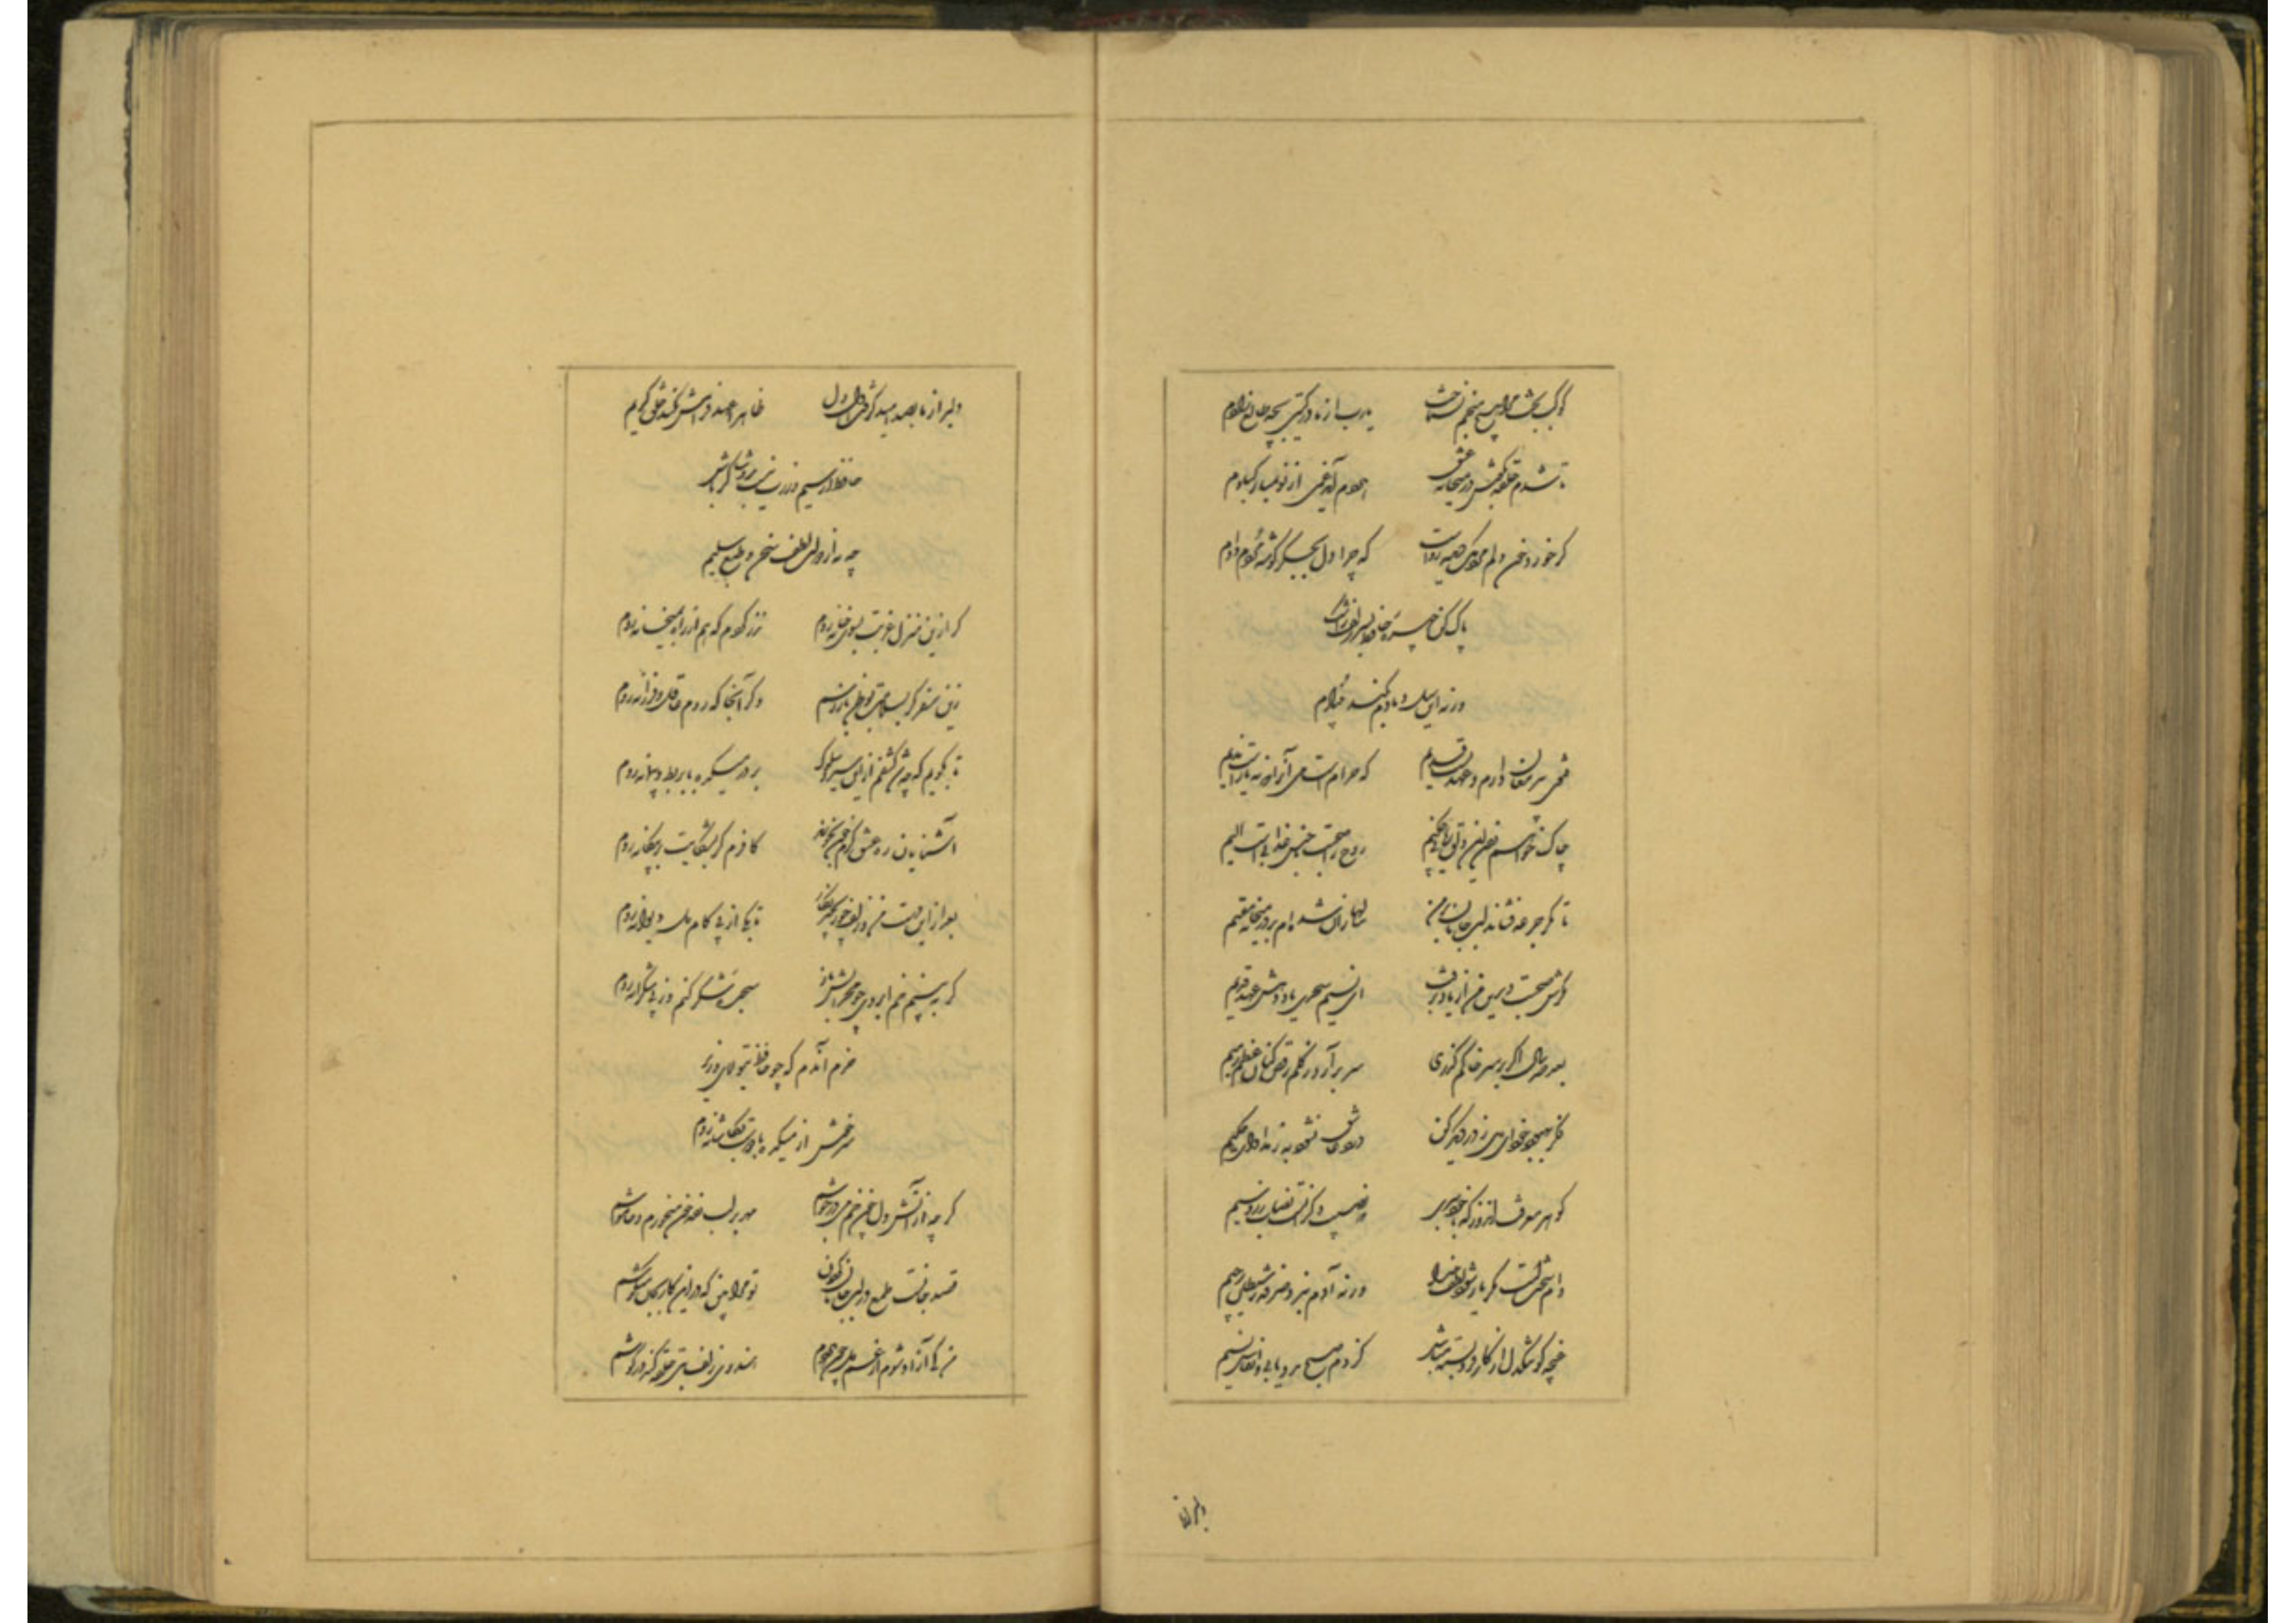 کوکب بخت مرا هیچ منجم نشناخت یارب از مادر گیتی بچه طالع زادم
تا شدم حلقه بگوش در میخانه عشق هر دم آید غمی از نو بمبارکبادم
گر خورد خون دلم مردمک دیده رواست که چرا دل بجگر گوشه مردم دادم
پاک کن چهره حافظ بسر زلف ز اشک
ورنه این سیل دمادم بکند بنیادم
فتوی پیر مغان دارم و عهدیست قدیم که حرام است می آنرا که نه یار است ندیم
چاک خواهم زدن این دلق ریایی چکنم روح را صحبت ناجنس عذابیست الیم
تا مگر جرعه فشاند لب جانان بر من سالها زان شده ام بر در میخانه مقیم
مگرش صحبت دیرین من از یاد برفت ای نسیم سحری یاد دهش عهد قدیم
بعد صد سال اگر بر سر خاکم گذری سر برآرد ز گلم رقص کنان عظم رمیم
فکر بهبود خود ای دل ز در دیگر کن درد عاشق نشود به ز مداوای حکیم
گوهر معرفت اندوز که با خود ببری که نصیب دگرانست نصاب زر و سیم
دام سختست مگر یار شود لطف خدا ورنه آدم نبرد صرفه ز شیطان رجیم
غنچه گو تنگدل از کار فروبسته مباش کز دم صبح مدد یابی و انفاس نسیم
دلبر از ما
دلبر از ما بصد امید گرفت اول دل ظاهرا عهد فرامش نکند خلق کریم
حافظ ار سیم و زرت نیست برو شاکر باش
چه به از دولت لطف سخن و طبع سلیم
گر ازین منزل غربت بسوی خانه روم نذر کردم که هم از راه بمیخانه روم
زین سفر گر بسلامت بوطن باز رسم دگر آنجا که روم عاقل و فرزانه روم
تا بگویم که چه شد کشفم ازین سیر و سلوک بر در میکده با بربط و پیمانه روم
آشنایان ره عشق گرم خون بخورند کافرم گر بشکایت بر بیگانه روم
بعد ازین دست من و زلف چو زنجیر نگار تا بکی از پی کام دل دیوانه روم
گر به بینم خم ابروی چو محرابش باز سجده شکر کنم وز پی شکرانه روم
خرم آندم که چو حافظ بتولای وزیر
سرخوش از میکده با دوست بکاشانه روم
گرچه از آتش دل چون خم می در جوشم مهر بر لب زده خون میخورم و خاموشم
قصد جانست طمع در لب جانان کردن تو مرا بین که درین کار بجان میکوشم
من کی آزاد شوم از غم دل چون هر دم هندوی زلف بتی حلقه کند در گوشم